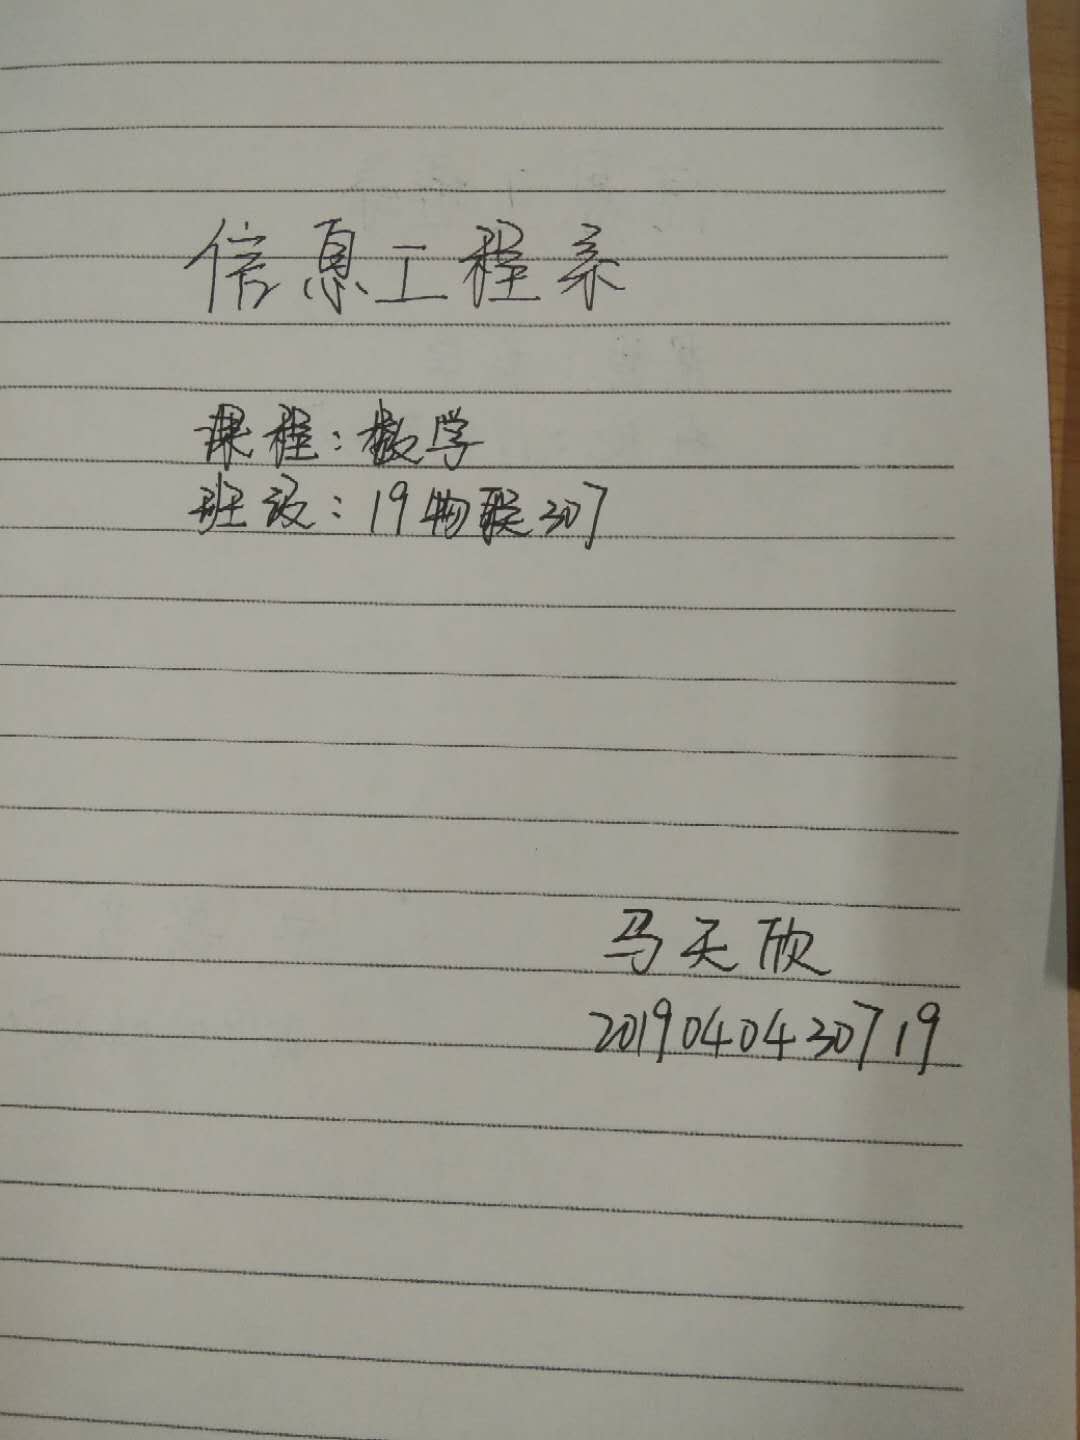 信息工程系
课程：数学
班级：19物联307
马天欣
2019040430719